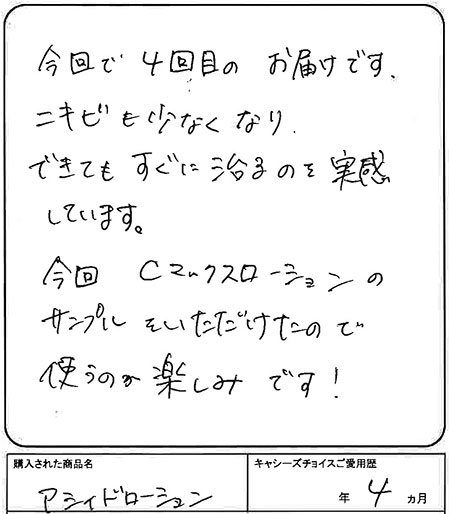 今回で 4回目の お届けです、
ニキビも少なくなり、
できてもすぐに治るのを実感
しています。
今回 Cマックスローションの
サンプルをいただけたので
使うのが楽しみです！
購入された商品名 キャシーズチョイスご愛用歴
アシィドローション 年 4 ヵ月